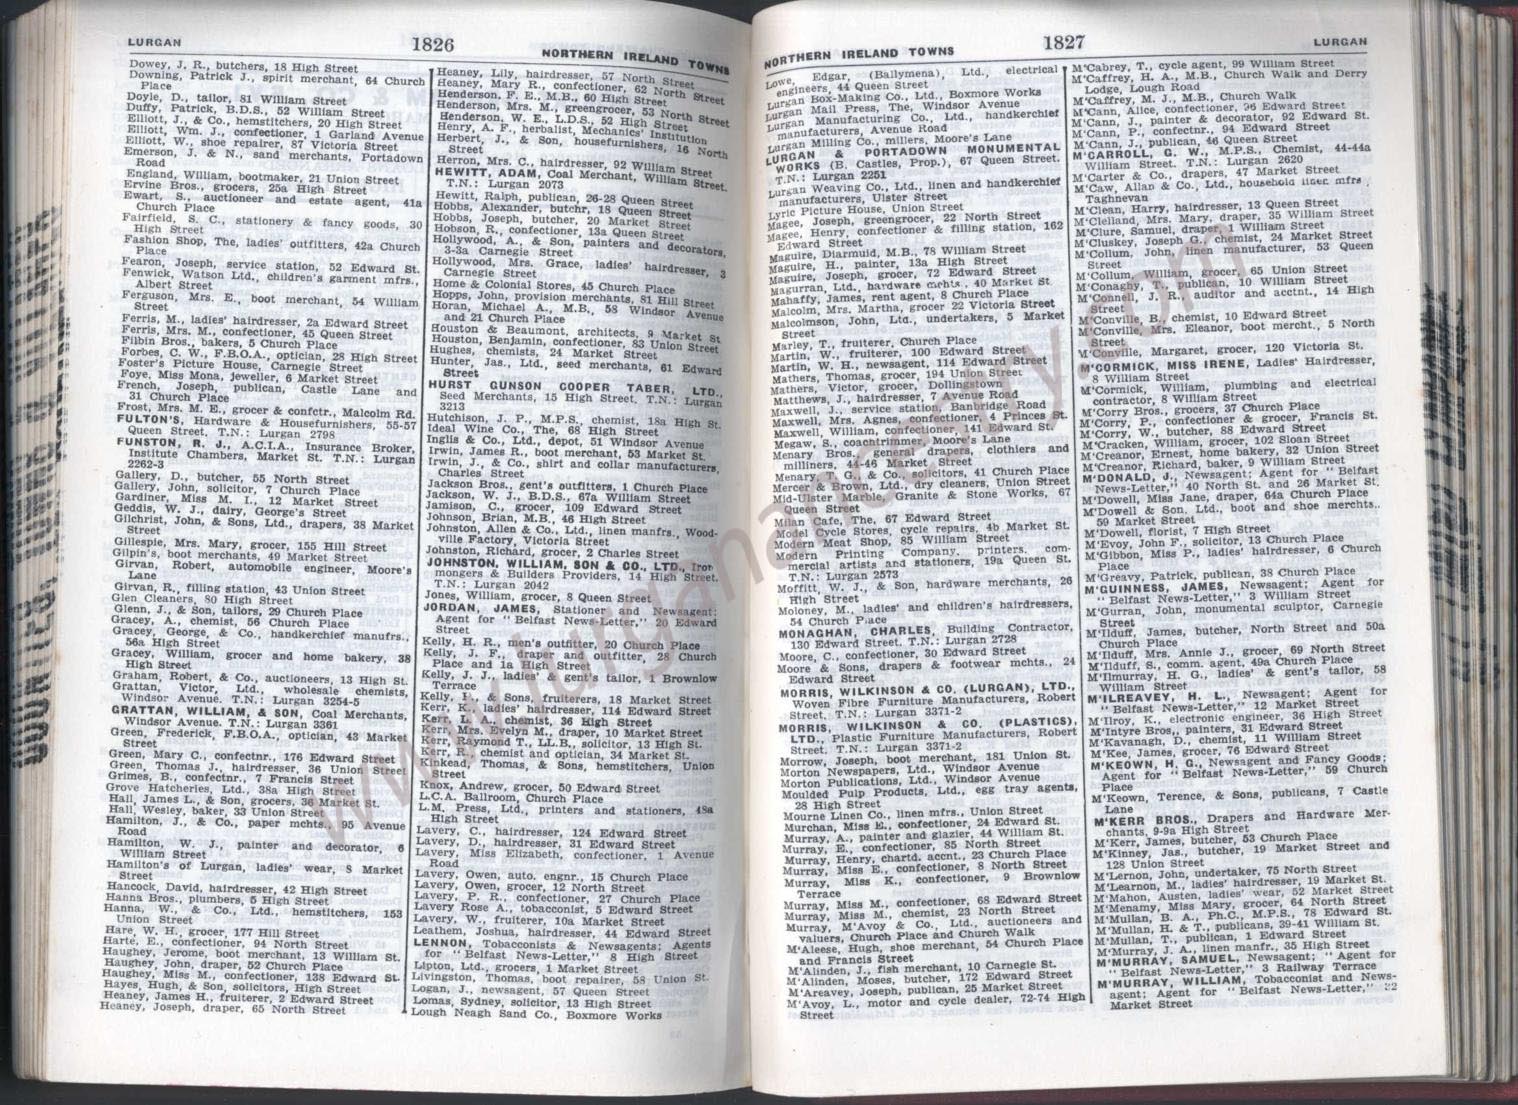 LURGAN
1826
NORTHERN IRELAND TOWNS
Dowey, J. R., butchers, 18 High Street
Downing, Patrick J., spirit merchant, 64 Church
Place
Doyle, D., tailor, 81 William Street
Duffy, Patrick, B.D.S., 52 William Street
Elliott, J., & Co., hemstitchers, 20 High Street
Elliott, Wm. J., confectioner, 1 Garland Avenue
Elliott, W., shoe repairer, 87 Victoria Street
Emerson, J. & N., sand merchants, Portadown
Road
England, William, bootmaker, 21 Union Street
Ervine Bros., grocers, 25a High Street
Ewart, S., auctioneer and estate agent, 41a
Church Place
Fairfield, S. C., stationery & fancy goods, 30
High Street
Fashion Shop, The, ladies' outfitters, 42a Church
Place
Fearon, Joseph, service station, 52 Edward St.
Fenwick, Watson Ltd., children's garment mfrs.,
Albert Street
Ferguson, Mrs. E., boot merchant, 54 William
Street
Ferris, M., ladies' hairdresser, 2a Edward Street
Ferris, Mrs. M., confectioner, 45 Queen Street
Filbin Bros., bakers, 5 Church Place
Forbes, C. W., F.B.O.A., optician, 28 High Street
Foster's Picture House, Carnegie Street
Foye, Miss Mona, jeweller, 6 Market Street
French, Joseph, publican, Castle Lane and
31 Church Place
Frost, Mrs. M. E., grocer & confctr., Malcolm Rd.
FULTON'S, Hardware & Housefurnishers, 55-57
Queen Street. T.N.: Lurgan 2798
FUNSTON, R. J., A.C.I.A., Insurance Broker,
Institute Chambers, Market St. T.N.: Lurgan
2262-3
Gallery, D., butcher, 55 North Street
Gallery, John, solicitor, 7 Church Place
Gardiner, Miss M. I., 12 Market Street
Geddis, W. J., dairy, George's Street
Gilchrist, John, & Sons, Ltd., drapers, 38 Market
Street
Gillespie, Mrs. Mary, grocer, 155 Hill Street
Gilpin's, boot merchants, 49 Market Street
Girvan, Robert, automobile engineer, Moore's
Lane
Girvan, R., filling station, 43 Union Street
Glen Cleaners, 80 High Street
Glenn, J., & Son, tailors, 29 Church Place
Gracey, A., chemist, 56 Church Place
Gracey, George, & Co., handkerchief manufrs.,
56a High Street
Gracey, William, grocer and home bakery, 38
High Street
Graham, Robert, & Co., auctioneers, 13 High St.
Grattan, Victor, Ltd., wholesale chemists,
Windsor Avenue. T.N.: Lurgan 3254-5
GRATTAN, WILLIAM, & SON, Coal Merchants,
Windsor Avenue. T.N.: Lurgan 3361
Green, Frederick, F.B.O.A., optician, 43 Market
Street
Green, Mary C., confectnr., 176 Edward Street
Green, Thomas J., hairdresser, 36 Union Street
Grimes, B., confectnr., 7 Francis Street
Grove Hatcheries, Ltd., 38a High Street
Hall, James L., & Son, grocers, 36 Market St.
Hall, Wesley, baker, 33 Union Street
Hamilton, J., & Co., paper mchts., 95 Avenue
Road
Hamilton, W. J., painter and decorator, 6
William Street
Hamilton's of Lurgan, ladies' wear, 8 Market
Street
Hancock, David, hairdresser, 42 High Street
Hanna Bros., plumbers, 5 High Street
Hanna, W., & Co., Ltd., hemstitchers, 153
Union Street
Hare, W. H., grocer, 177 Hill Street
Harte, E., confectioner, 94 North Street
Haughey, Jerome, boot merchant, 13 William St.
Haughey, John, draper, 52 Church Place
Haughey, Miss M., confectioner, 138 Edward St.
Hayes, Hugh, & Son, solicitors, High Street
Heaney, James H., fruiterer, 2 Edward Street
Heaney, Joseph, draper, 65 North Street
Heaney, Lily, hairdresser, 57 North Street
Heaney, Mary R., confectioner, 62 North Street
Henderson, F. E., M.B., 60 High Street
Henderson, Mrs. M., greengrocer, 53 North Street
Henderson, W. E., L.D.S., 52 High Street
Henry, A. F., herbalist, Mechanics' Institution
Herbert, J., & Son, housefurnishers, 16 North
Street
Herron, Mrs. C., hairdresser, 92 William Street
HEWITT, ADAM, Coal Merchant, William Street.
T.N.: Lurgan 2073
Hewitt, Ralph, publican, 26-28 Queen Street
Hobbs, Alexander, butchr, 18 Queen Street
Hobbs, Joseph, butcher, 20 Market Street
Hobson, R., confectioner, 13a Queen Street
Hollywood, A., & Son, painters and decorators,
3-3a Carnegie Street
Hollywood, Mrs. Grace, ladies' hairdresser, 3
Carnegie Street
Home & Colonial Stores, 45 Church Place
Hopps, John, provision merchants, 81 Hill Street
Horan, Michael A., M.B., 58 Windsor Avenue
and 21 Church Place
Houston & Beaumont, architects, 9 Market St
Houston, Benjamin, confectioner, 83 Union Street
Hughes, chemists, 24 Market Street
Hunter, Jas., Ltd., seed merchants, 61 Edward
Street
HURST GUNSON COOPER TABER, LTD.,
Seed Merchants, 15 High Street. T.N.: Lurgan
3213
Hutchison, J. P., M.P.S., chemist, 18a High St.
Ideal Wine Co., The, 68 High Street
Inglis & Co., Ltd., depot, 51 Windsor Avenue
Irwin, James R., boot merchant, 53 Market St.
Irwin, J., & Co., shirt and collar manufacturers,
Charles Street
Jackson Bros., gent's outfitters, 1 Church Place
Jackson, W. J., B.D.S., 67a William Street
Jamison, C., grocer, 109 Edward Street
Johnson, Brian, M.B., 46 High Street
Johnston, Allen & Co., Ltd., linen manfrs., Wood-
ville Factory, Victoria Street
Johnston, Richard, grocer, 2 Charles Street
JOHNSTON, WILLIAM, SON & CO., LTD., Iron
mongers & Builders Providers, 14 High Street.
T.N.: Lurgan 2042
Jones, William, grocer, 8 Queen Street
JORDAN, JAMES, Stationer and Newsagent;
Agent for "Belfast News-Letter," 20 Edward
Street
Kelly, H. R., men's outfitter, 20 Church Place
Kelly, J. F., draper and outfitter, 28 Church
Place and 1a High Street
Kelly, J. J., ladies' & gent's tailor, 1 Brownlow
Terrace
Kelly, P., & Sons, fruiterers, 18 Market Street
Kerr, K., ladies' hairdresser, 114 Edward Street
Kerr, L. A., chemist, 36 High Street
Kerr, Mrs. Evelyn M., draper, 10 Market Street
Kerr, Raymond T., LL.B., solicitor, 13 High St.
Kerr, R., chemist and optician, 34 Market St.
Kinkead, Thomas, & Sons, hemstitchers, Union
Street
Knox, Andrew, grocer, 50 Edward Street
L.C.A. Ballroom, Church Place
L.M. Press, Ltd., printers and stationers, 48a
High Street
Lavery, C., hairdresser, 124 Edward Street
Lavery, D., hairdresser, 31 Edward Street
Lavery, Miss Elizabeth, confectioner, 1 Avenue
Road
Lavery, Owen, auto. engnr., 15 Church Place
Lavery, Owen, grocer, 12 North Street
Lavery, P. R., confectioner, 27 Church Place
Lavery Rose A., tobacconist, 5 Edward Street
Lavery, W., fruiterer, 10a Market Street
Leathem, Joshua, hairdresser, 44 Edward Street
LENNON, Tobacconists & Newsagents; Agents
for "Belfast News-Letter," 8 High Street
Lipton, Ltd., grocers, 1 Market Street
Livingston, Thomas, boot repairer, 58 Union St.
Logan, J., newsagent, 57 Queen Street
Lomas, Sydney, solicitor, 13 High Street
Lough Neagh Sand Co., Boxmore Works
NORTHERN IRELAND TOWNS
1827
LURGAN
Lowe, Edgar, (Ballymena), Ltd., electrical
engineers, 44 Queen Street
Lurgan Box-Making Co., Ltd., Boxmore Works
Lurgan Mail Press, The, Windsor Avenue
Lurgan Manufacturing Co., Ltd., handkerchief
manufacturers, Avenue Road
Lurgan Milling Co., millers, Moore's Lane
LURGAN & PORTADOWN MONUMENTAL
WORKS (B. Castles, Prop.), 67 Queen Street.
T.N.: Lurgan 2251
Lurgan Weaving Co., Ltd., linen and handkerchief
manufacturers, Ulster Street
Lyric Picture House, Union Street
Magee, Joseph, greengrocer, 22 North Street
Magee, Henry, confectioner & filling station, 162
Edward Street
Maguire, Diarmuid, M.B., 78 William Street
Maguire, H., painter, 13a High Street
Maguire, Joseph, grocer, 72 Edward Street
Magurran, Ltd., hardware mchts., 40 Market St
Mahaffy, James, rent agent, 8 Church Place
Malcolm, Mrs. Martha, grocer 22 Victoria Street
Malcolmson, John, Ltd., undertakers, 5 Market
Street
Marley, T., fruiterer, Church Place
Martin, W., fruiterer, 100 Edward Street
Martin, W. H., newsagent, 114 Edward Street
Mathers, Thomas, grocer, 194 Union Street
Mathers, Victor, grocer, Dollingstown
Matthews, J., hairdresser, 7 Avenue Road
Maxwell, J., service station, Banbridge Road
Maxwell, Mrs. Agnes, confectioner, 4 Princes St.
Maxwell, William, confectioner, 141 Edward St.
Megaw, S., coachtrimmer, Moore's Lane
Menary Bros., general drapers, clothiers and
milliners, 44-46 Market Street
Menary, T. G., & Co., solicitors, 41 Church Place
Mercer & Brown, Ltd., dry cleaners, Union Street
Mid-Ulster Marble, Granite & Stone Works, 67
Queen Street
Milan Cafe, The, 67 Edward Street
Model Cycle Stores, cycle repairs, 4b Market St.
Modern Meat Shop, 85 William Street
Modern Printing Company, printers, com-
mercial artists and stationers, 19a Queen St.
T.N.: Lurgan 2573
Moffitt, W. J., & Son, hardware merchants, 26
High Street
Moloney, M., ladies' and children's hairdressers,
54 Church Place
MONAGHAN, CHARLES, Building Contractor,
130 Edward Street. T.N.: Lurgan 2728
Moore, C., confectioner, 30 Edward Street
Moore & Sons, drapers & footwear mchts., 24
Edward Street
MORRIS, WILKINSON & CO. (LURGAN), LTD.,
Woven Fibre Furniture Manufacturers, Robert
Street. T.N.: Lurgan 3371-2
MORRIS, WILKINSON & CO. (PLASTICS),
LTD., Plastic Furniture Manufacturers, Robert
Street. T.N.: Lurgan 3371-2
Morrow, Joseph, boot merchant, 181 Union St.
Morton Newspapers, Ltd., Windsor Avenue
Morton Publications, Ltd., Windsor Avenue
Moulded Pulp Products, Ltd., egg tray agents,
28 High Street
Mourne Linen Co., linen mfrs., Union Street
Murchan, Miss E., confectioner, 24 Edward St.
Murray, A., painter and glazier, 44 William St.
Murray, E., confectioner, 85 North Street
Murray, Henry, chartd. accnt., 23 Church Place
Murray, Miss E., confectioner, 8 North Street
Murray, Miss K., confectioner, 9 Brownlow
Terrace
Murray, Miss M., confectioner, 68 Edward Street
Murray, Miss M., chemist, 23 North Street
Murray, M'Avoy & Co., Ltd., auctioneers and
valuers, Church Place and Church Walk
M'Aleese, Hugh, shoe merchant, 54 Church Place
and Francis Street
M'Alinden, J., fish merchant, 10 Carnegie St.
M'Alinden, Moses, butcher, 172 Edward Street
M'Areavey, Joseph, publican, 25 Market Street
M'Avoy, L., motor and cycle dealer, 72-74 High
Street
M'Cabrey, T., cycle agent, 99 William Street
M'Caffrey, H. A., M.B., Church Walk and Derry
Lodge, Lough Road
M'Caffrey, M. J., M.B., Church Walk
M'Cann, Alice, confectioner, 96 Edward Street
M'Cann, J., painter & decorator, 92 Edward St.
M'Cann, P., confectnr., 94 Edward Street
M'Cann, J., publican, 46 Queen Street
M'CARROLL, G. W., M.P.S., Chemist, 44-44a
William Street. T.N.: Lurgan 2620
M'Carter & Co., drapers, 47 Market Street
M'Caw, Allan & Co., Ltd., household linen mfrs,
Taghnevan
M'Clean, Harry, hairdresser, 13 Queen Street
M'Clelland, Mrs. Mary, draper, 35 William Street
M'Clure, Samuel, draper, 1 William Street
M'Cluskey, Joseph G., chemist, 24 Market Street
M'Collum, John, linen manufacturer, 53 Queen
Street
M'Collum, William, grocer, 65 Union Street
M'Conaghy, T., publican, 10 William Street
M'Connell, J. R., auditor and acctnt., 14 High
Street
M'Conville, B., chemist, 10 Edward Street
M'Conville, Mrs. Eleanor, boot mercht., 5 North
Street
M'Conville, Margaret, grocer, 120 Victoria St.
M'CORMICK, MISS IRENE, Ladies' Hairdresser,
8 William Street
M'Cormick, William, plumbing and electrical
contractor, 8 William Street
M'Corry Bros., grocers, 37 Church Place
M'Corry, P., confectioner & grocer, Francis St.
M'Corry, W., butcher, 88 Edward Street
M'Cracken, William, grocer, 102 Sloan Street
M'Creanor, Ernest, home bakery, 32 Union Street
M'Creanor, Richard, baker, 9 William Street
M'DONALD, J., Newsagent: Agent for "Belfast
News-Letter," 40 North St. and 26 Market St.
M'Dowell, Miss Jane, draper, 64a Church Place
M'Dowell & Son. Ltd., boot and shoe merchts.,
59 Market Street
M'Dowell, florist, 7 High Street
M'Evoy, John F., solicitor, 13 Church Place
M'Gibbon, Miss P., ladies' hairdresser, 6 Church
Place
M'Greavy, Patrick, publican, 38 Church Place
M'GUINNESS, JAMES, Newsagent; Agent for
"Belfast News-Letter," 3 William Street
M'Gurran, John, monumental sculptor, Carnegie
Street
M'Ilduff, James, butcher, North Street and 50a
Church Place
M'Ilduff, Mrs. Annie J., grocer, 69 North Street
M'Ilduff, S., comm. agent, 49a Church Place
M'Ilmurray, H. G., ladies' & gent's tailor, 58
William Street
M'ILREAVEY, H. L., Newsagent; Agent for
"Belfast News-Letter," 12 Market Street
M'Ilroy, K., electronic engineer, 36 High Street
M'Intyre Bros., painters, 31 Edward Street
M'Kavanagh, D., chemist, 11 William Street
M'Kee, James, grocer, 76 Edward Street
M'KEOWN, H. G., Newsagent and Fancy Goods;
Agent for "Belfast News-Letter," 59 Church
Place
M'Keown, Terence, & Sons, publicans, 7 Castle
Lane
M'KERR BROS., Drapers and Hardware Mer-
chants, 9-9a High Street
M'Kerr, James, butcher, 53 Church Place
M'Kinney, Jas., butcher, 19 Market Street and
128 Union Street
M'Lernon, John, undertaker, 75 North Street
M'Learnon, M., ladies' hairdresser, 19 Market St.
M'Mahon, Austen, ladies' wear, 52 Market Street
M'Menamy, Miss Mary, grocer, 64 North Street
M'Mullan, B. A., Ph.C., M.P.S., 78 Edward St.
M'Mullan, H. & T., publicans, 39-41 William St.
M'Mullan, T., publican, 1 Edward Street
M'Murray, J. A., linen manfr., 35 High Street
M'MURRAY, SAMUEL, Newsagent; "Agent for
"Belfast News-Letter," 3 Railway Terrace
M'MURRAY, WILLIAM, Tobacconist and News-
agent; Agent for "Belfast News-Letter," 22
Market Street
www.lurganancestry.com